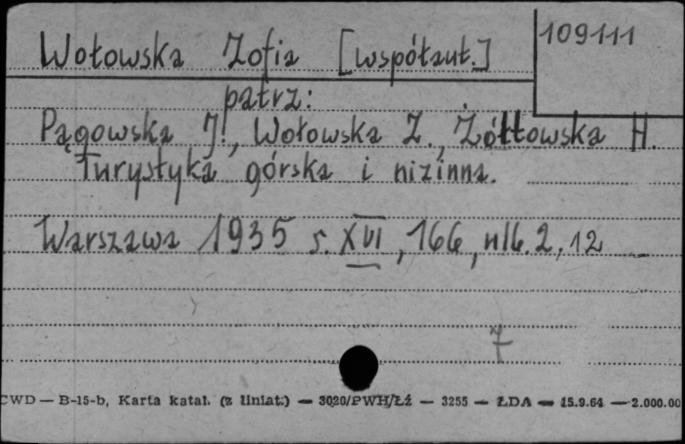 Wołowska Zofia [współaut.]
109111
patrz:
Pągowska J., Wołowska Z., Żółtowska H.
Turystyka górska i nizinna.
Warszawa 1935 s. XVI, 166, nlb. 2, 12
7
CWD — B-15-b, Karta katal. (z liniat.) — 3020/PWH/Łź — 3255 — ŁDA — 15.9.64 — 2.000.00